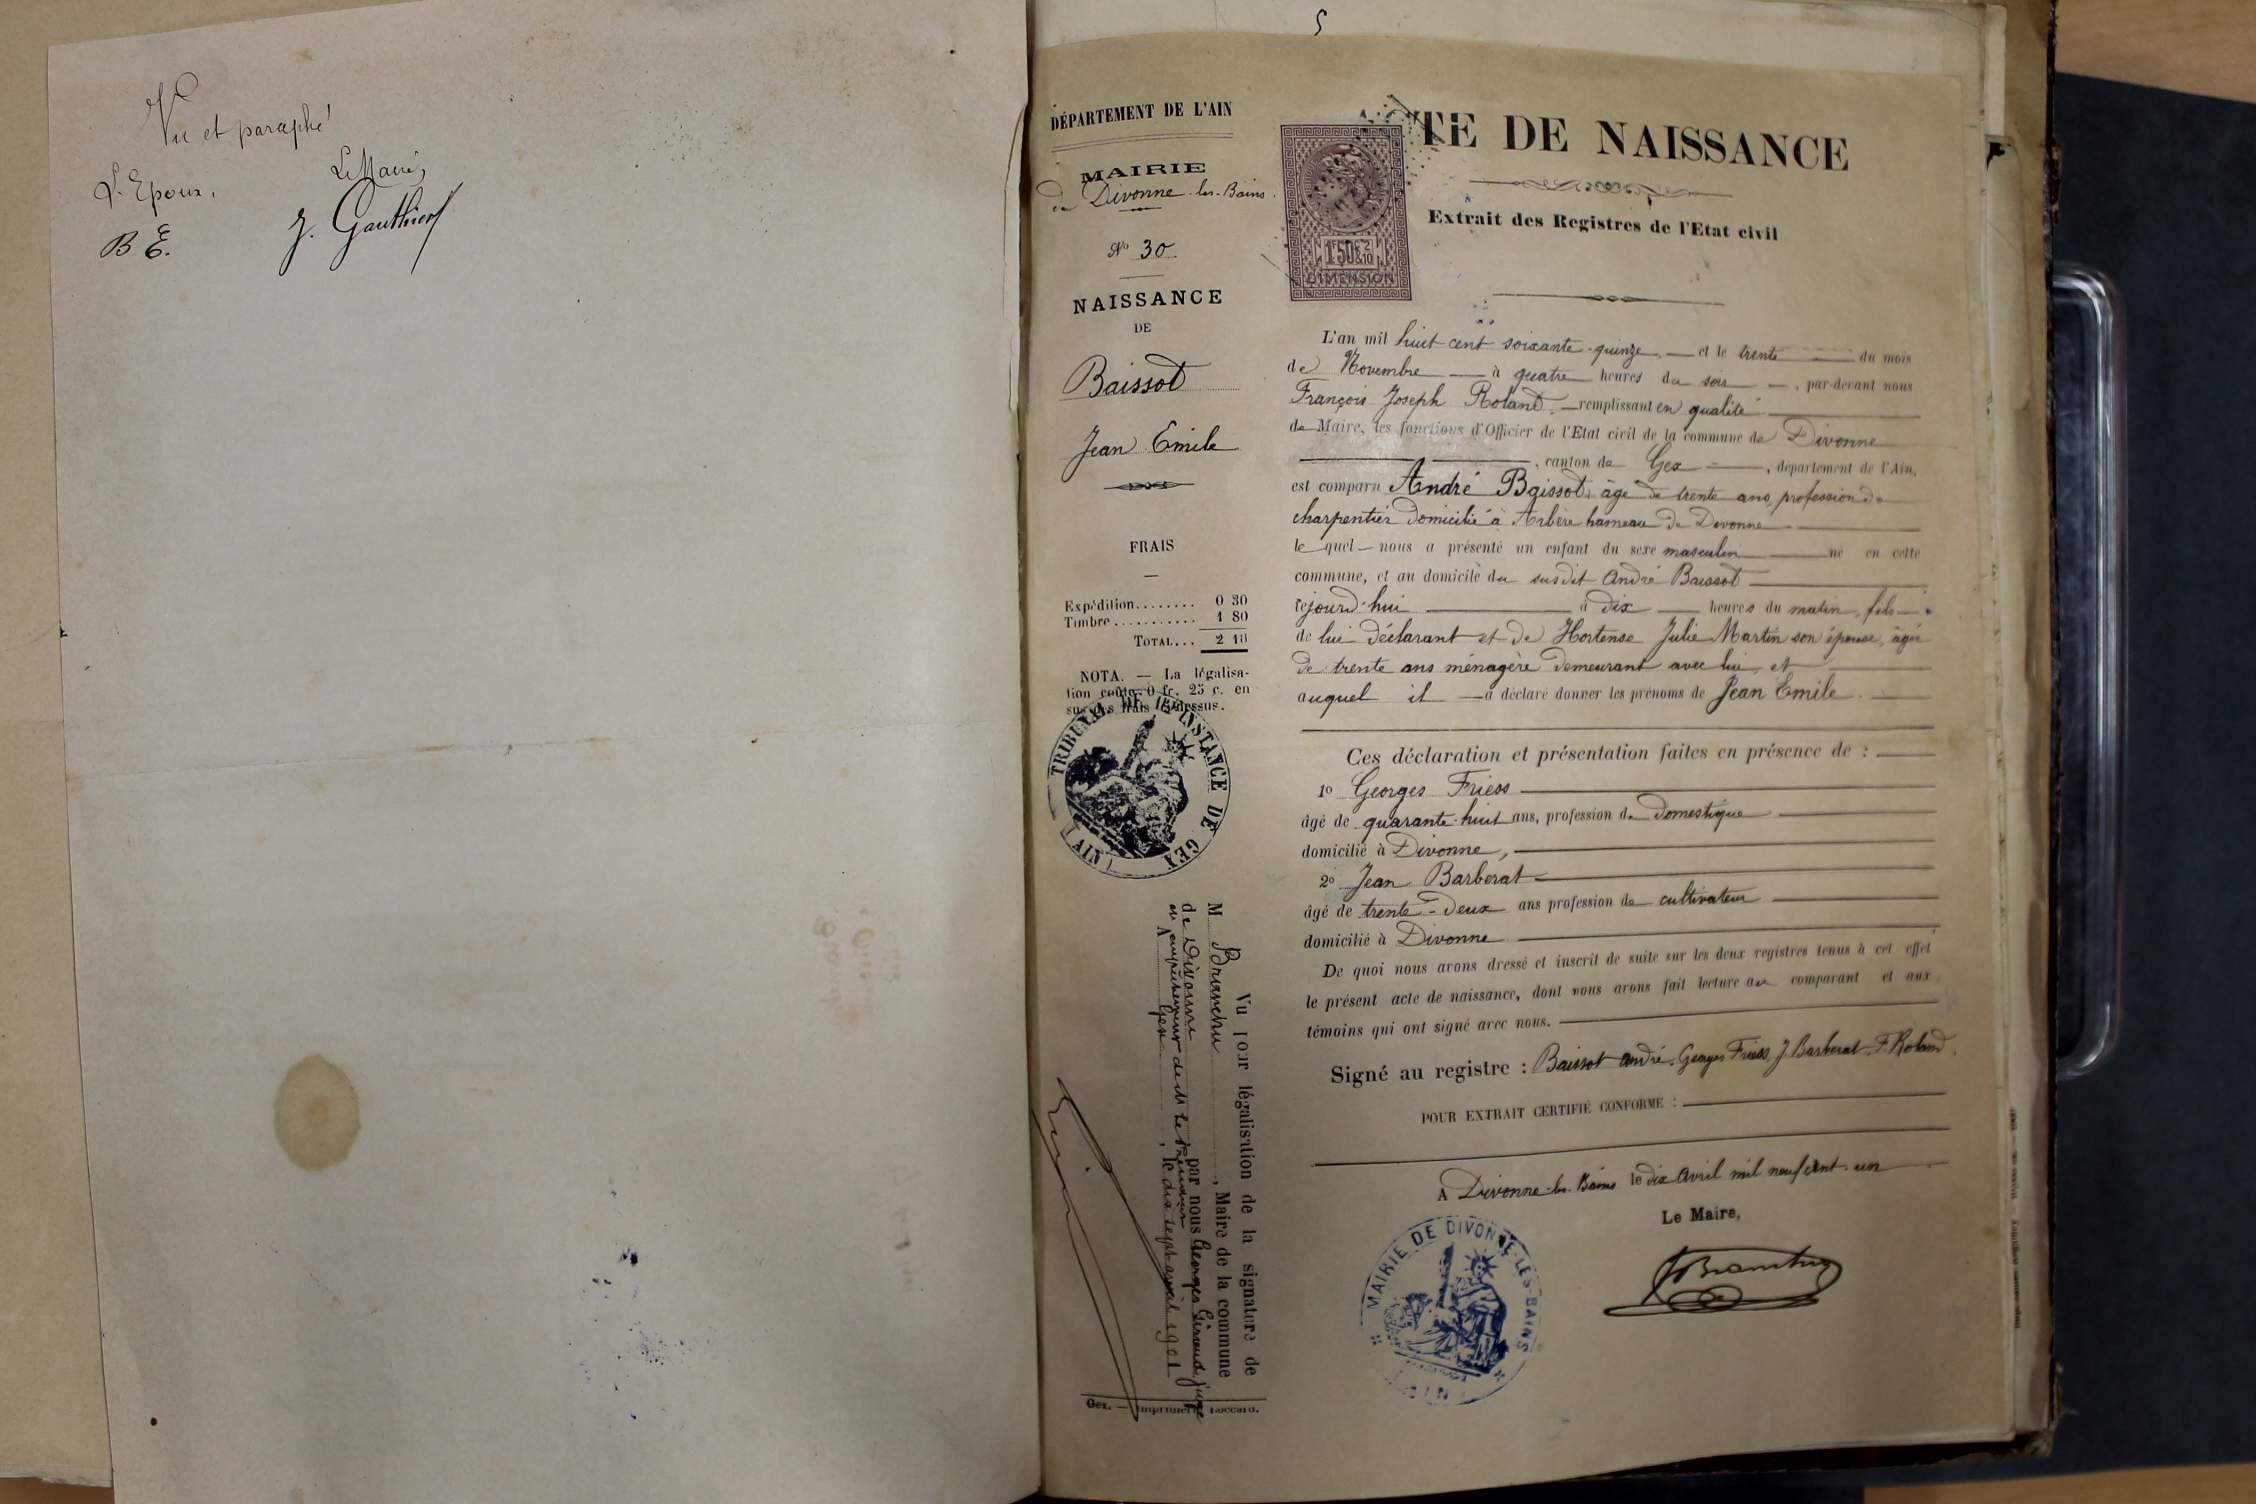 Vu et paraphé
L'Epoux,
Le Maire,
B E.
J. Gauthier
5
DÉPARTEMENT DE L'AIN
MAIRIE
de Divonne-les-Bains.
No 30
NAISSANCE
DE
Baissot
Jean Emile
FRAIS
Expédition........ 0 30
Timbre........... 1 80
TOTAL... 2 10
NOTA. — La légalisa-
tion coûte 0 fr. 25 c. en
sus des frais ci-dessus.
TRIBUNAL DE 1ERE INSTANCE DE GEX
(AIN)
Vu pour légalisation de la signature de
M Brianchu, Maire de la commune
de Divonne par nous Georges Giroud juge
en empêchement de M. le Président
A Gex, le dix sept avril 1901
Gex. — Imprimerie
ACTE DE NAISSANCE
1F50C 2/10
DIMENSION
Extrait des Registres de l'Etat civil
L'an mil huit cent soixante-quinze — et le trente — du mois
de Novembre — à quatre heures du soir —, par-devant nous
François Joseph Roland — remplissant en qualité
de Maire, les fonctions d'Officier de l'Etat civil de la commune de Divonne
, canton de Gex —, département de l'Ain,
est comparu André Baissot, âgé de trente ans, profession de
charpentier domicilié à Arbère hameau de Divonne
le quel — nous a présenté un enfant du sexe masculin — né en cette
commune, et au domicile du susdit André Baissot
cejourd'hui — à dix — heures du matin, fils —
de lui déclarant et de Hortense Julie Martin son épouse, âgée
de trente ans ménagère demeurant avec lui, et
auquel il — a déclaré donner les prénoms de Jean Emile.
Ces déclaration et présentation faites en présence de :
1o Georges Friess
âgé de quarante-huit ans, profession de domestique
domicilié à Divonne,
2o Jean Barberat
âgé de trente-deux ans profession de cultivateur
domicilié à Divonne
De quoi nous avons dressé et inscrit de suite sur les deux registres tenus à cet effet
le présent acte de naissance, dont nous avons fait lecture au comparant et aux
témoins qui ont signé avec nous.
Signé au registre : Baissot André. Georges Friess, J. Barberat. F. Roland.
POUR EXTRAIT CERTIFIÉ CONFORME :
A Divonne-les-Bains le dix Avril mil neuf cent-un
Le Maire,
MAIRIE DE DIVONNE-LES-BAINS
AIN